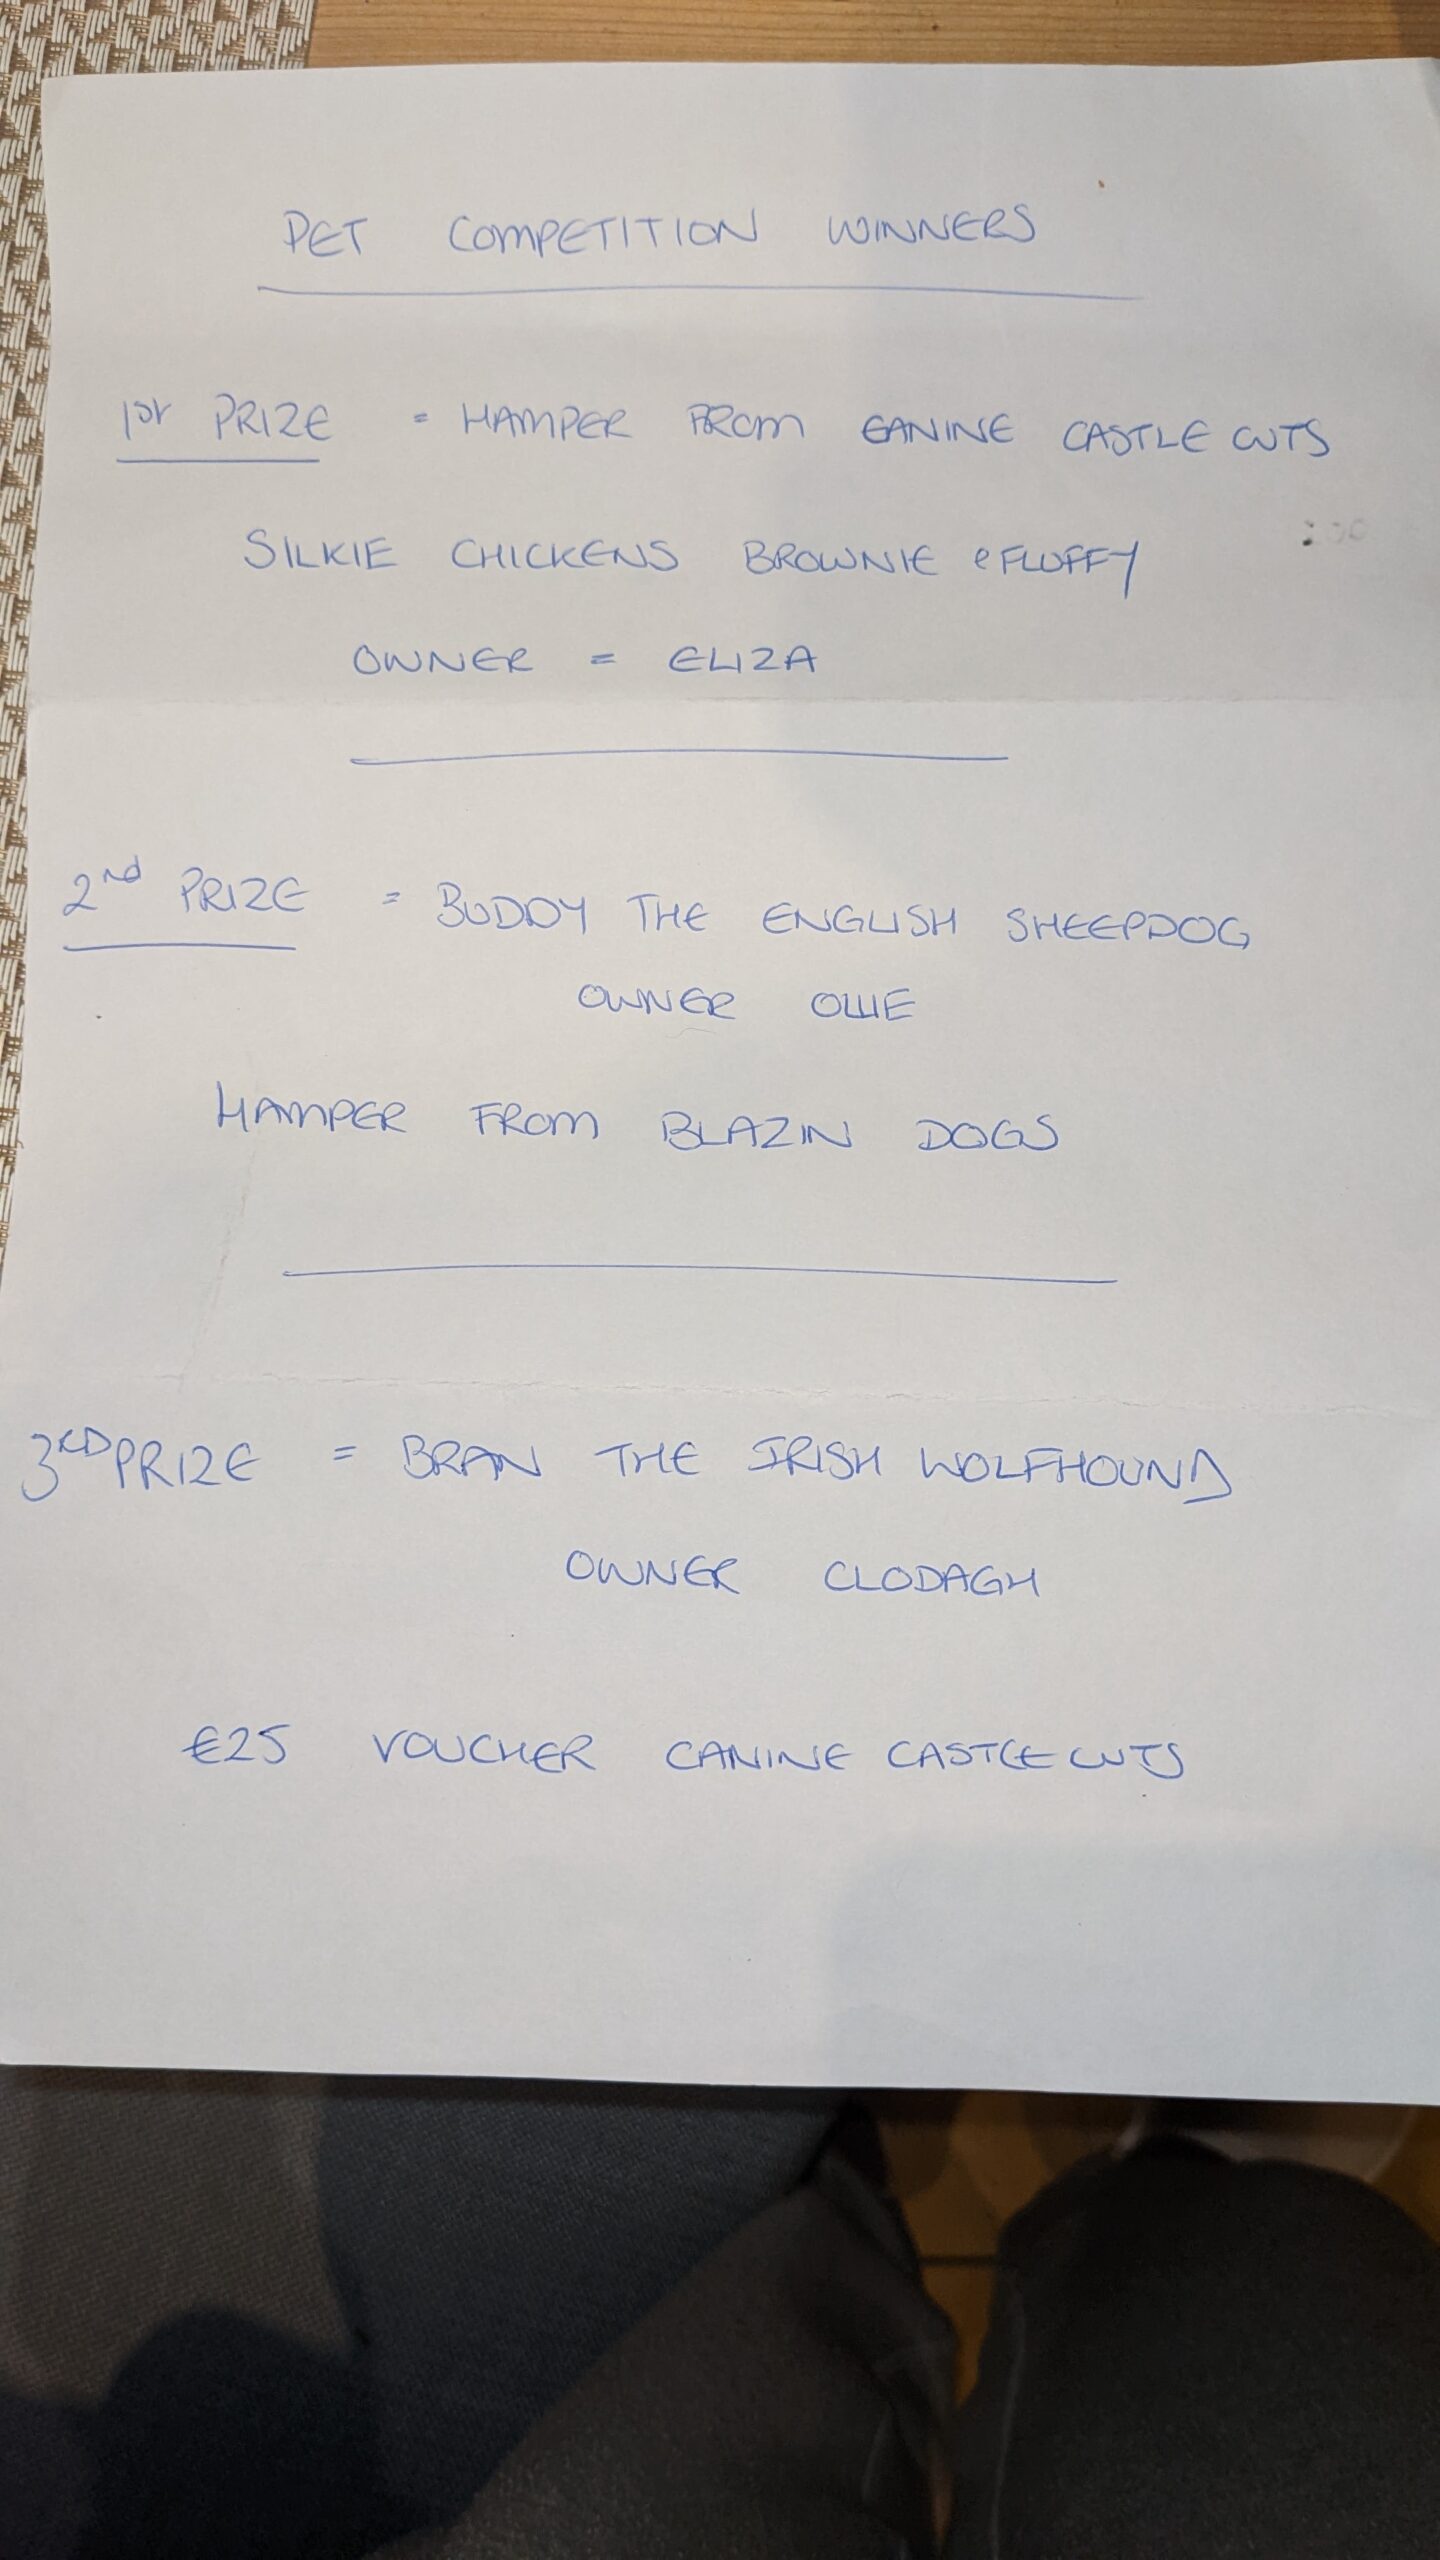 PET COMPETITION WINNERS
1ST PRIZE = HAMPER FROM CANINE CASTLE CUTS
SILKIE CHICKENS BROWNIE & FLUFFY
OWNER = ELIZA
2nd PRIZE = BUDDY THE ENGLISH SHEEPDOG
OWNER OLLIE
HAMPER FROM BLAZIN DOGS
3RD PRIZE = BRAN THE IRISH WOLFHOUND
OWNER CLODAGH
€25 VOUCHER CANINE CASTLE CUTS